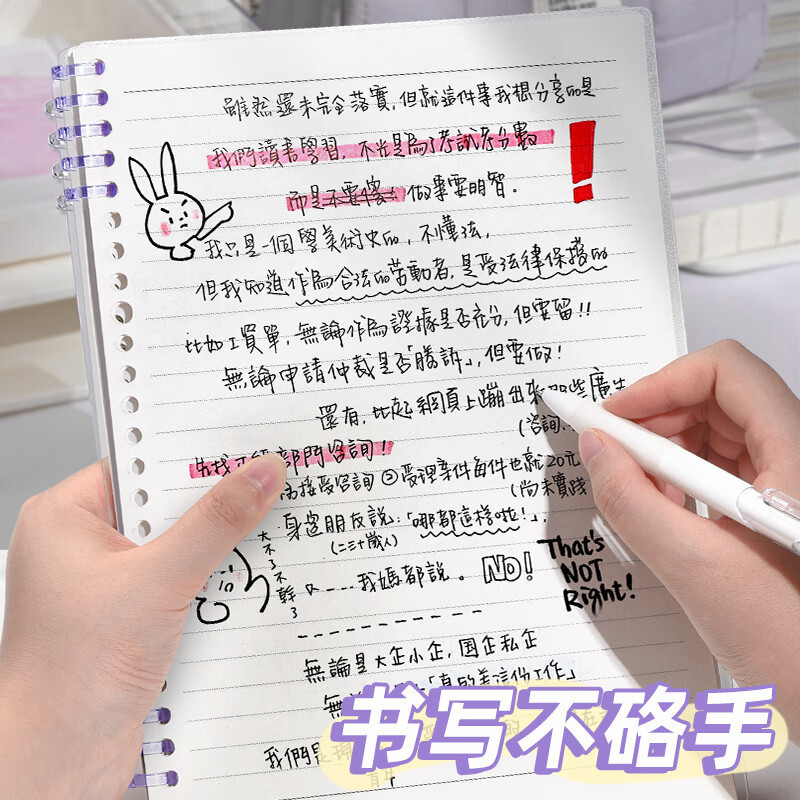 雖然還未完全落實,但就這件事我想分享的是
我們讀書學習,不光是為了考試考分數
而是不要當 做事要明智。
我只是一個學美術史的,不懂法,
但我知道作為合法的勞動者,是受法律保護的
比如工資單,無論作為證據是否充分,但要留!!
無論申請仲裁是否「勝訴」,但要做!
還有,比起網頁上蹦出來那些廣告
(咨詢
先找 部門咨詢!
接受咨詢 ②受理案件每件也就20元
(尚未實踐
身邊朋友說:「哪都這樣啦!」,
(二三十歲人)
大不了不幹了
又----我媽都說。 NO!
That's
NOT
Right!
無論是大企小企,国企私企
無 「真的差這份工作」
我們是
书写不硌手